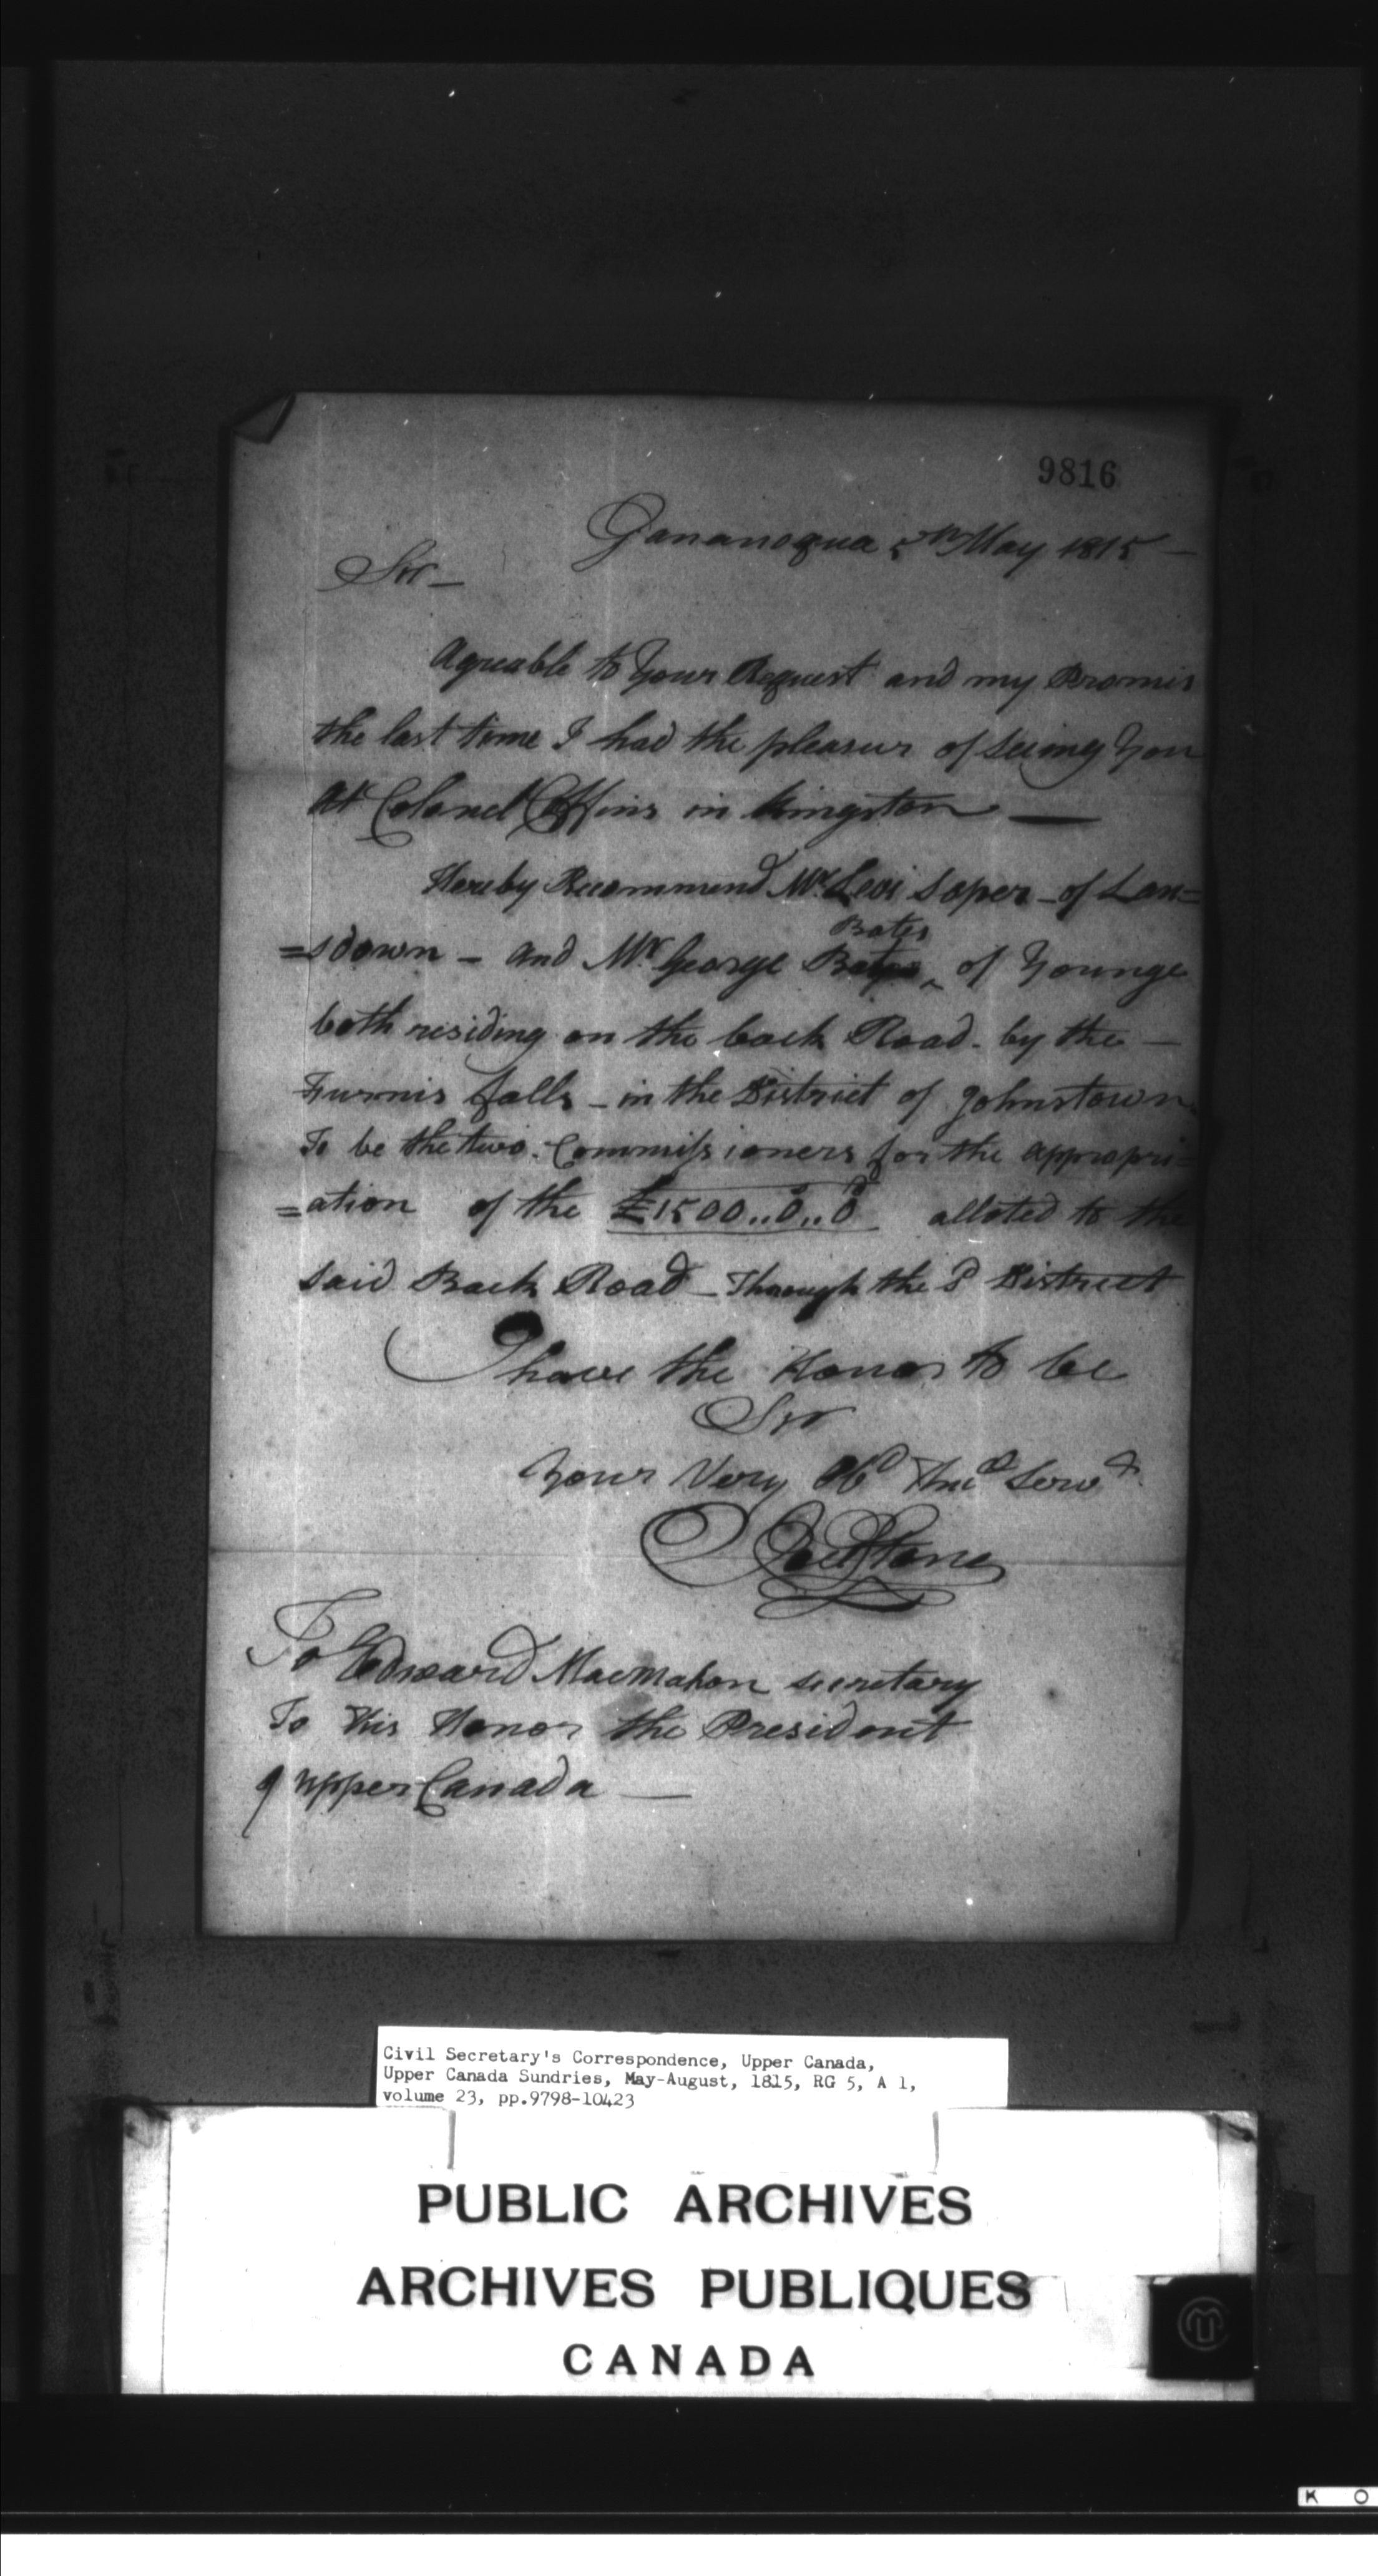 9816
Gananoqua 5th May 1815 —
Sir —
Agreable to Your Request and my Promis
the last time I had the pleasur of seeing You
at Colonel Coffins in Kingston —
Hereby Recommend Mr Levi Soper – of Lan=
=sdown – and Mr George Bates of Younge
both residing on the back Road – by the –
Furnis falls – in the District of Johnstown
To be the two Commissioners for the appropri=
=ation of the £1500..0..0 alloted to the
said Back Road – Through the sd District
I have the Honor to be
Sir
Your Very Obd Hue Servt
Joel Stone
To Edward MacMahon secretary
To His Honor the President
of Upper Canada —
Civil Secretary's Correspondence, Upper Canada,
Upper Canada Sundries, May-August, 1815, RG 5, A 1,
volume 23, pp.9798-10423
PUBLIC ARCHIVES
ARCHIVES PUBLIQUES
CANADA
K O